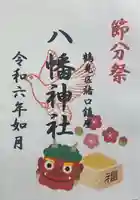 節分祭
鶴見区鎮座
八幡神社
令和六年如月
福